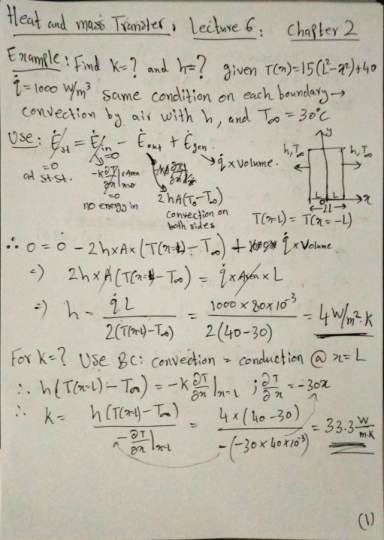 Heat and mass Transfer, Lecture 6: Chapter 2
Example: Find k=? and h=? given T(x)=15(L²-x²)+40
q̇=1000 W/m³ same condition on each boundary→
convection by air with h, and T∞=30°C
Use: Ėst = Ėin - Ėout + Ėgen
=0 =0 q̇ x volume.
at st.st. -k ∂T/∂x
=0
no energy in
2hA(T0-T∞)
convection on
both sides
y
h,T∞ h,T∞
x
L L
2L
T(x=L) = T(x=-L)
∴ 0 = 0 - 2h×A×(T(x=L)-T∞) + q̇ x Volume
⇒ 2h×A(T(x=L)-T∞) = q̇ x Area x L
⇒ h = q̇L / 2(T(x=L)-T∞) = 1000×80×10⁻³ / 2(40-30) = 4 W/m².K
For k=? Use BC: convection = conduction @ x=L
∴ h(T(x=L)-T∞) = -k ∂T/∂x |x=L ; ∂T/∂x = -30x
∴ k = h(T(x=L)-T∞) / -∂T/∂x |x=L = 4×(40-30) / -(-30×40×10⁻³) = 33.3 W/m.K
(1)